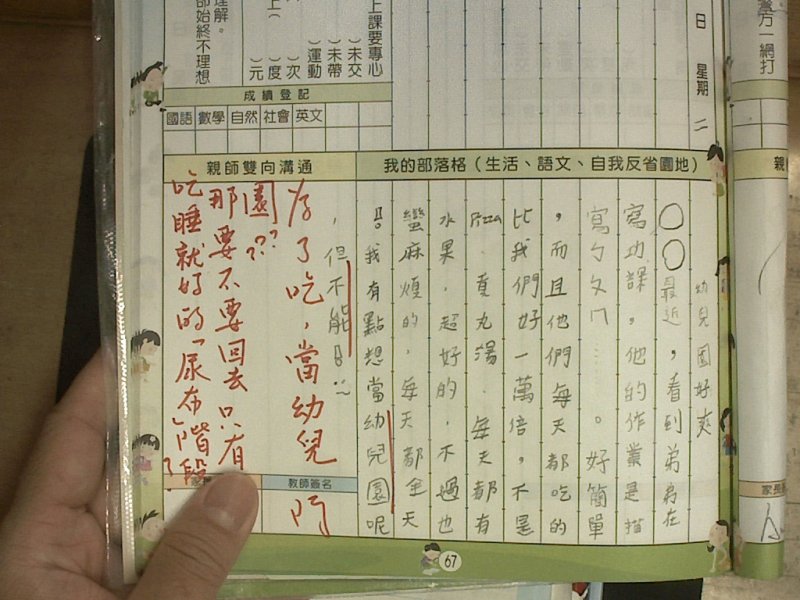 上課要專心
）未交
）未帶
）運動
）次
）度
）元
上（
理解。
師始終不理想
日 星期 二
一網打
成績登記
國語 數學 自然 社會 英文
親師雙向溝通
我的部落格（生活、語文、自我反省園地）
幼兒園好爽
○○最近，看到弟弟在
寫功課，他的作業是描
寫ㄅㄆㄇ……。好簡單
，而且他們每天都吃的
比我們好一萬倍，不是
Pizza、貢丸湯、每天都有
水果，超好的，不過也
蠻麻煩的，每天都全天
！！我有點想當幼兒園呢
，但不能
為了吃，當幼兒
園???
那要不要回去只有
吃睡就好的「尿布」階段
了！
教師簽名
67